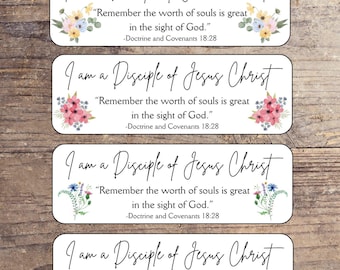 "Remember the worth of souls is great
in the sight of God."
-Doctrine and Covenants 18:28
I am a Disciple of Jesus Christ
"Remember the worth of souls is great
in the sight of God."
-Doctrine and Covenants 18:28
I am a Disciple of Jesus Christ
"Remember the worth of souls is great
in the sight of God."
-Doctrine and Covenants 18:28
I am a Disciple of Jesus Christ